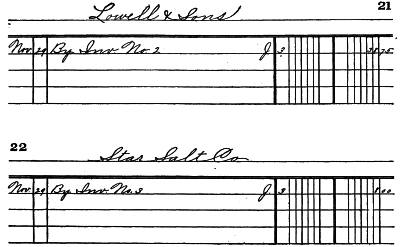 Lowell & Sons 21
Nov. 29 By Inv No 2 J 3 38 75
22
Star Salt Co
Nov. 29 By Inv No. 3 J 3 8 00